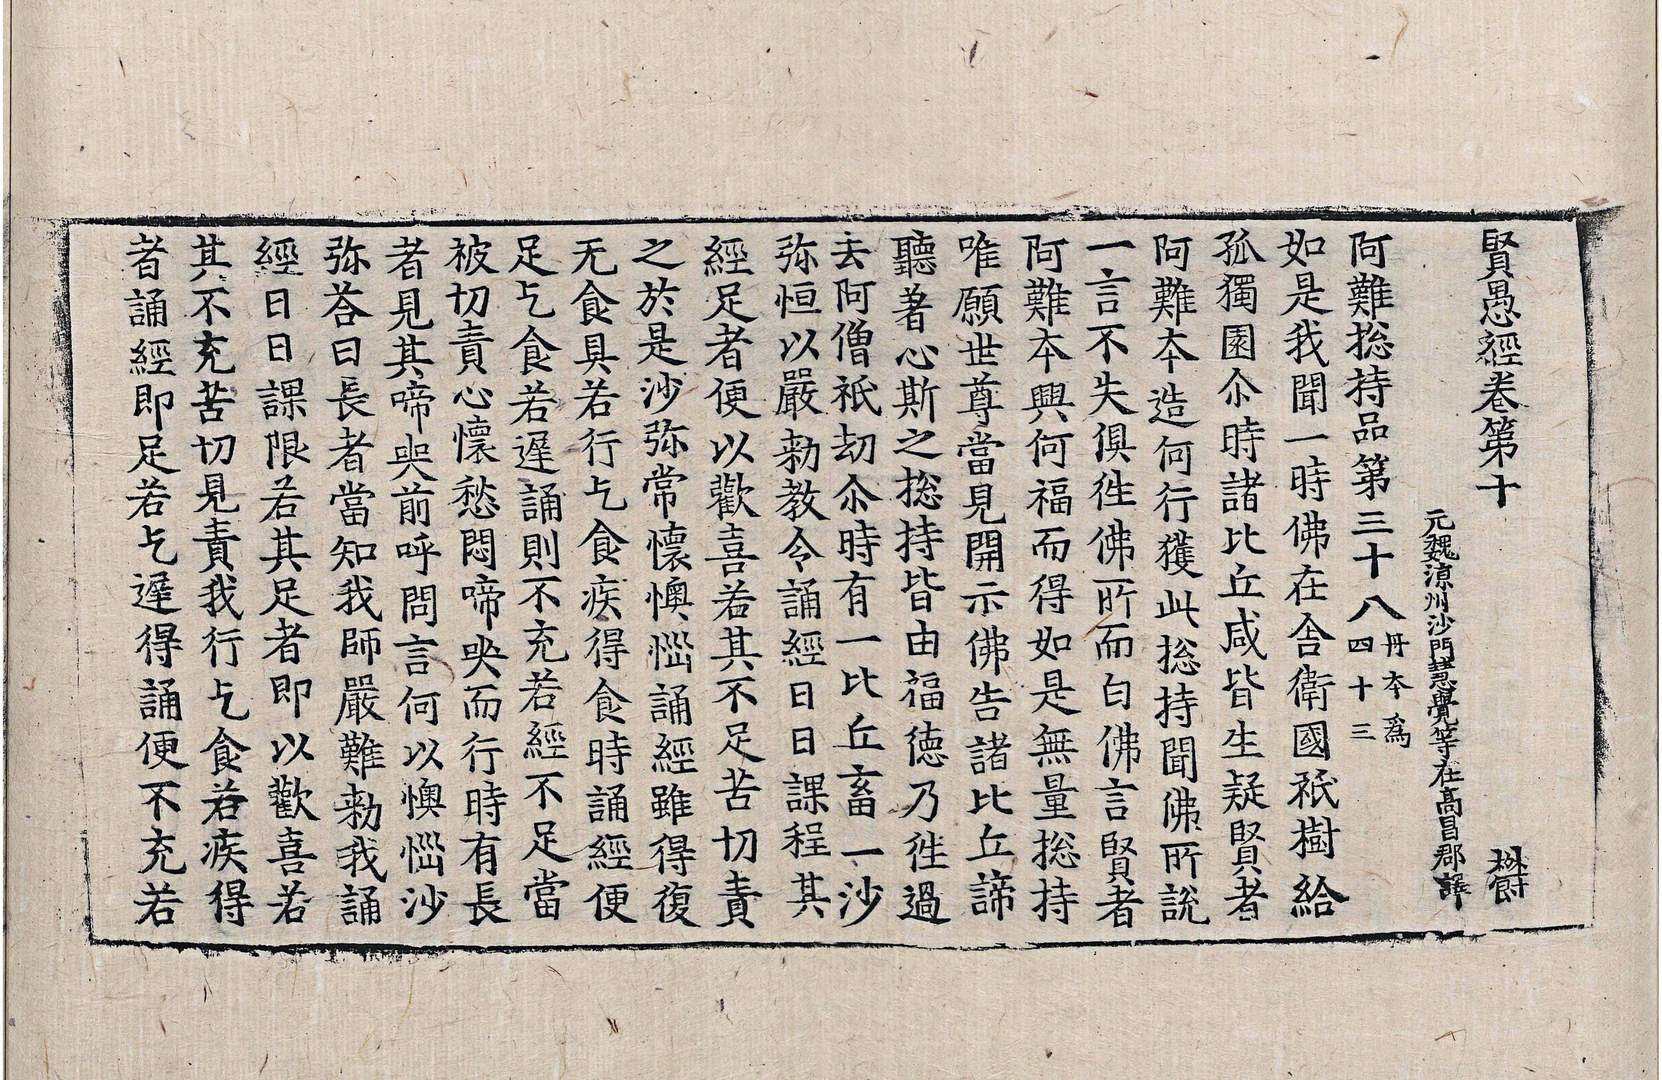 賢愚經卷第十
元魏涼州沙門慧覺等在高昌郡譯
阿難捴持品第三十八 丹本爲四十三
如是我聞一時佛在舍衛國祇樹給
孤獨園尒時諸比丘咸皆生疑賢者
阿難本造何行獲此捴持聞佛所說
一言不失俱徃佛所而白佛言賢者
阿難本興何福而得如是無量捴持
唯願世尊當見開示佛告諸比丘諦
聽著心斯之捴持皆由福德乃徃過
去阿僧祇劫尒時有一比丘畜一沙
弥恒以嚴勑教令誦經日日課程其
經足者便以歡喜若其不足苦切責
之於是沙弥常懷懊惱誦經雖得復
无食具若行乞食疾得食時誦經便
足乞食若遲誦則不充若經不足當
被切責心懷愁悶啼哭而行時有長
者見其啼哭前呼問言何以懊惱沙
弥荅曰長者當知我師嚴難勑我誦
經日日課限若其足者即以歡喜若
其不充苦切見責我行乞食若疾得
者誦經即足若乞遲得誦便不充若